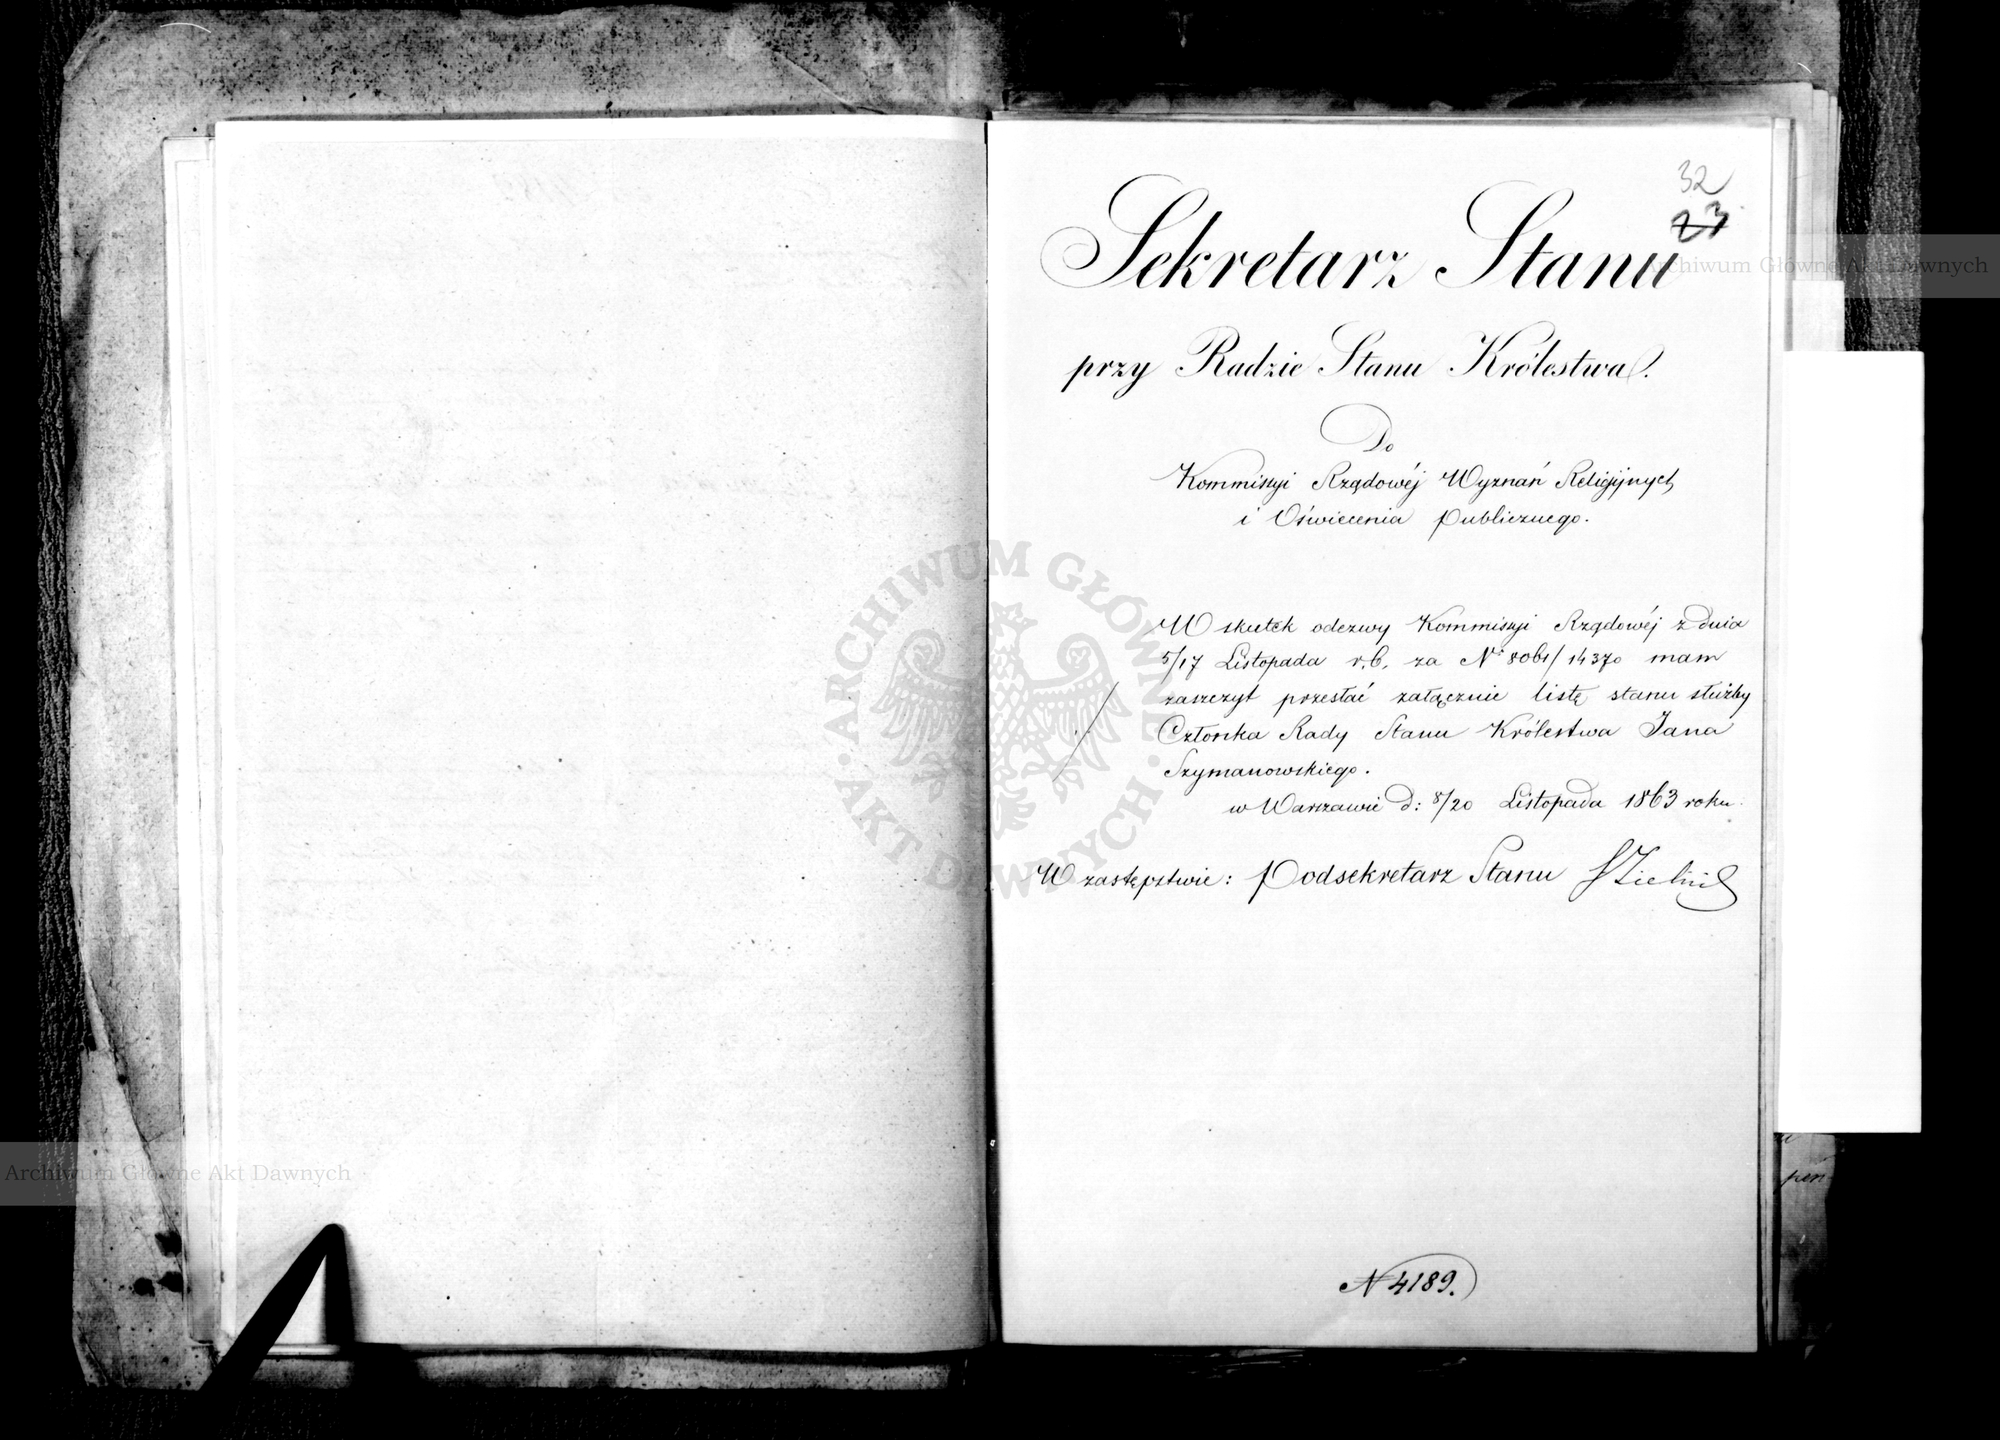 32
23
Sekretarz Stanu
przy Radzie Stanu Królestwa.
Do
Kommissyi Rządowéj Wyznań Religijnych
i Oświecenia Publicznego.
W skutek odezwy Kommissyi Rządowéj z dnia
5/17 Listopada r.b. za Nr 8061/14370 mam
zaszczyt przesłać załącznie listę stanu służby
Członka Rady Stanu Królestwa Jana
Szymanowskiego.
w Warszawie d: 8/20 Listopada 1863 roku.
W zastępstwie: Podsekretarz Stanu
N 4189.
Archiwum Główne Akt Dawnych
ARCHIWUM GŁÓWNE AKT DAWNYCH
Archiwum Główne Akt Dawnych